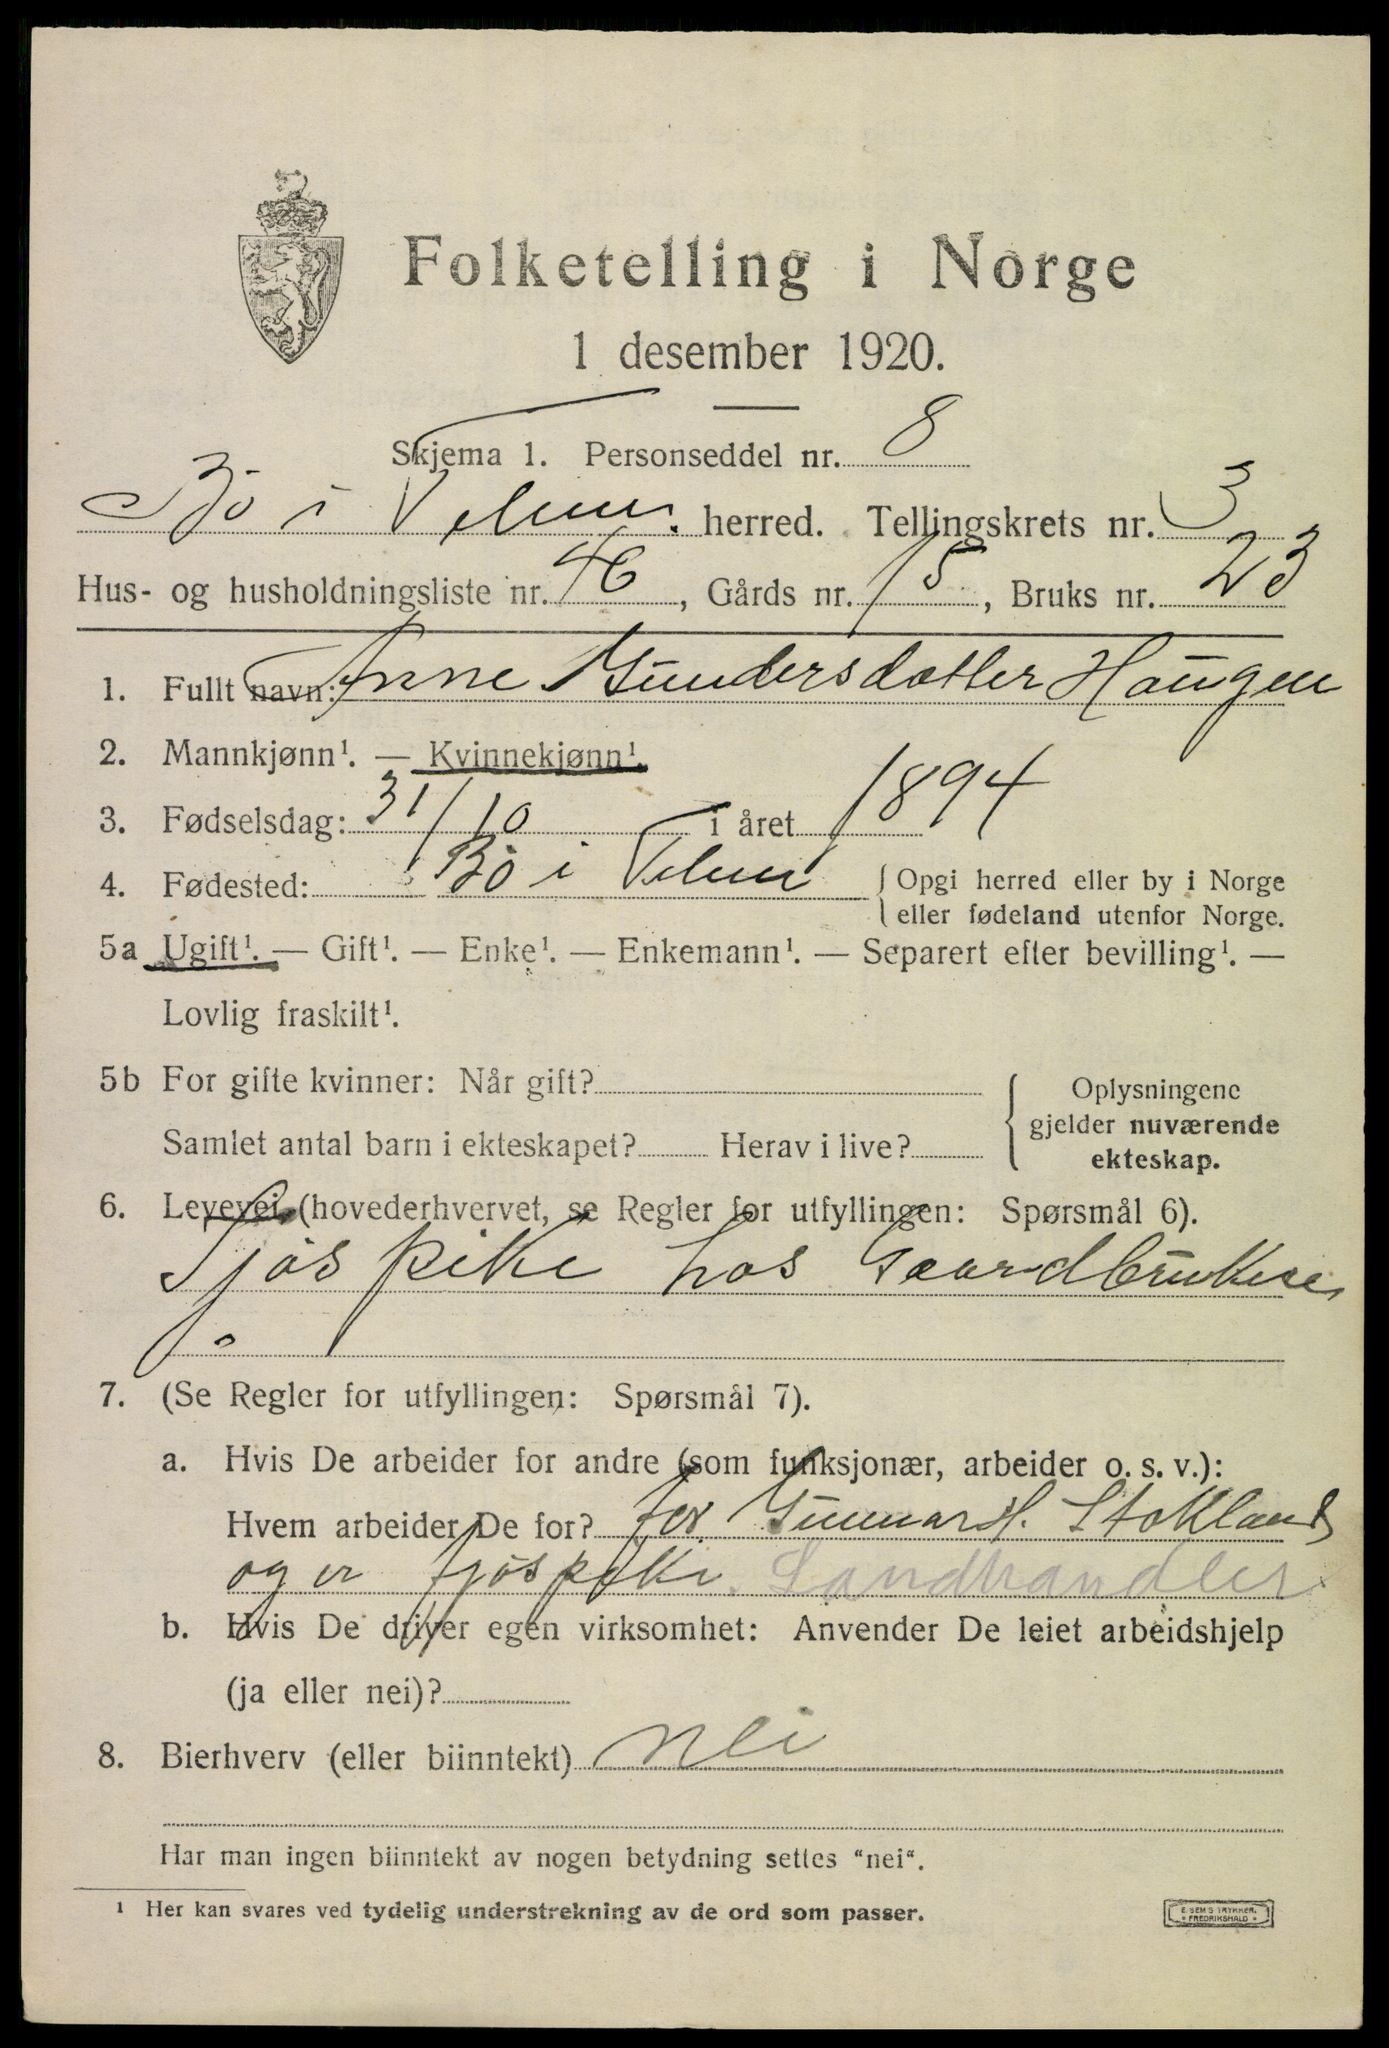 Folketelling i Norge
1 desember 1920.
Skjema 1. Personseddel nr. 8
Bö i Telem. herred. Tellingskrets nr. 3
Hus- og husholdningsliste nr. 46, Gårds nr. 15, Bruks nr. 23
1. Fullt navn: Anne Gundersdatter Haugen
2. Mannkjønn¹. — Kvinnekjønn¹.
3. Fødselsdag: 31/10 i året 1894
4. Fødested: Bö i Telem { Opgi herred eller by i Norge
eller fødeland utenfor Norge.
5a Ugift¹. — Gift¹. — Enke¹. — Enkemann¹. — Separert efter bevilling¹. —
Lovlig fraskilt¹.
5b For gifte kvinner: Når gift? { Oplysningene
gjelder nuværende
Samlet antal barn i ekteskapet? Herav i live? ekteskap.
6. Levevei (hovederhvervet, se Regler for utfyllingen: Spørsmål 6).
Fjøs pike hos Gaardbruker
7. (Se Regler for utfyllingen: Spørsmål 7).
a. Hvis De arbeider for andre (som funksjonær, arbeider o. s. v.):
Hvem arbeider De for? for Gunnar H. Stokland
og er fjøspike. Landhandler
b. Hvis De driver egen virksomhet: Anvender De leiet arbeidshjelp
(ja eller nei)?
8. Bierhverv (eller biinntekt) nei
Har man ingen biinntekt av nogen betydning settes "nei".
¹ Her kan svares ved tydelig understrekning av de ord som passer.
E. SEM'S TRYKKERI,
* FREDRIKSHALD *